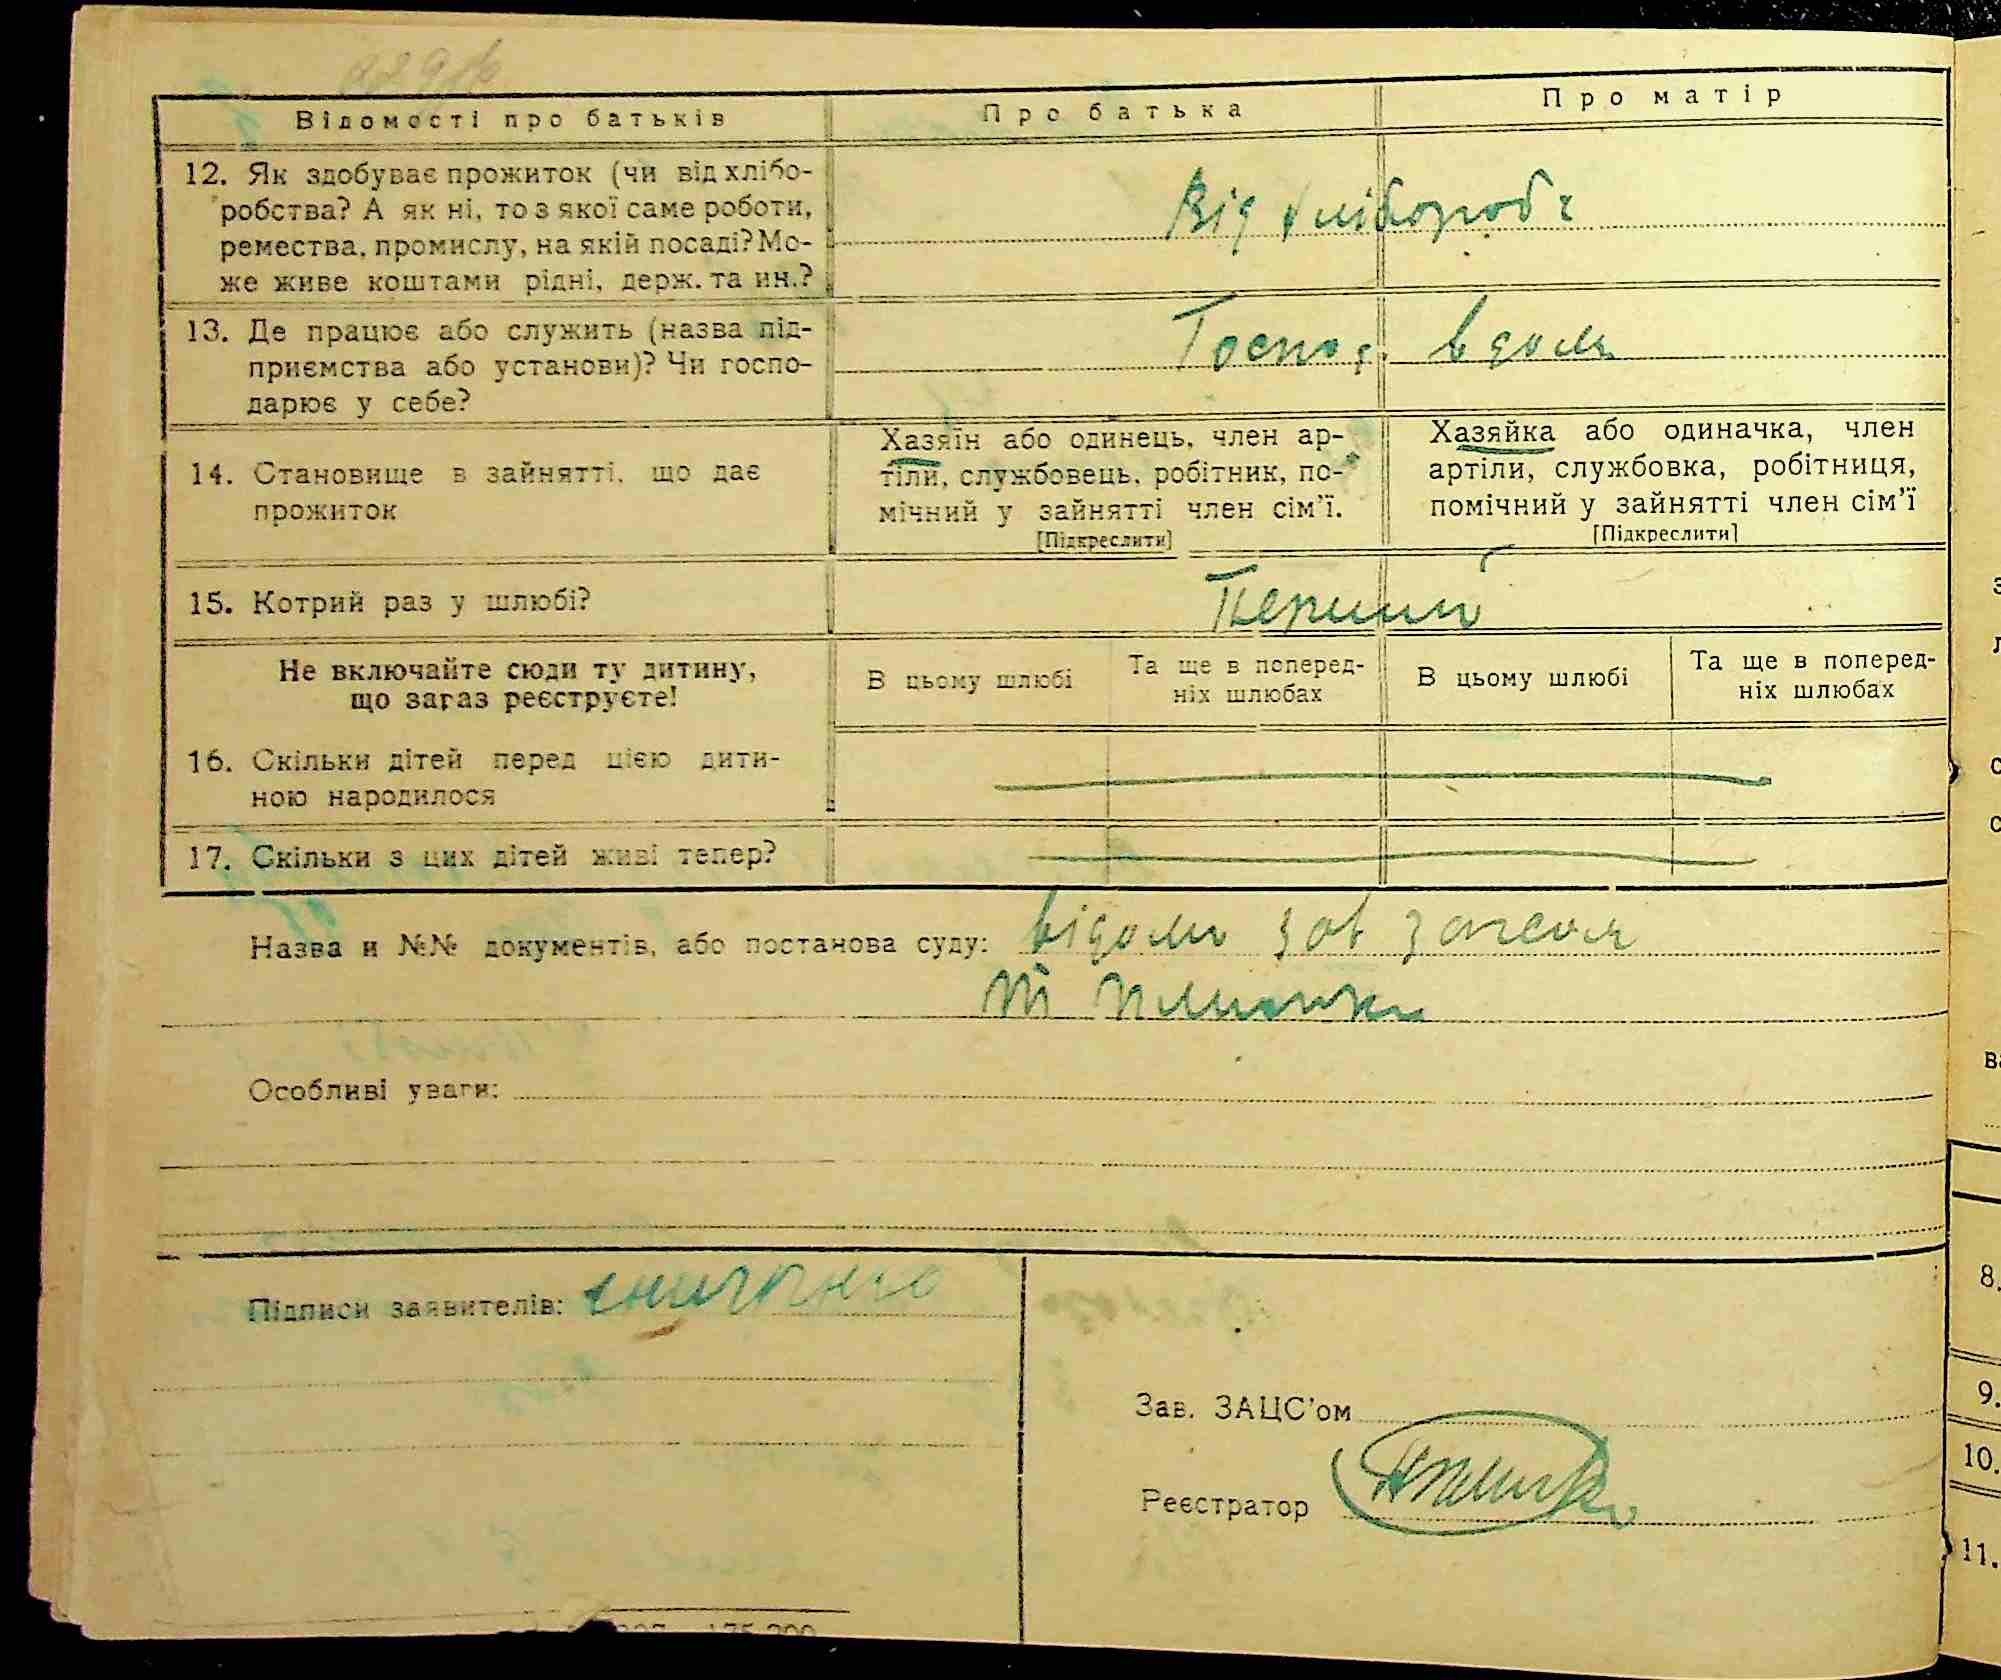 Відомості про батьків
Про батька
Про матір
12. Як здобуває прожиток (чи від хлібо-
робства? А як ні, то з якої саме роботи,
ремества, промислу, на якій посаді? Мо-
же живе коштами рідні, держ. та ин.?
Від хлібороб
13. Де працює або служить (назва під-
приємства або установи)? Чи госпо-
дарює у себе?
Господ. вдома
14. Становище в зайнятті, що дає
прожиток
Хазяїн або одинець, член ар-
тіли, службовець, робітник, по-
мічний у зайнятті член сім'ї.
[Підкреслити]
Хазяйка або одиначка, член
артіли, службовка, робітниця,
помічний у зайнятті член сім'ї
[Підкреслити]
15. Котрий раз у шлюбі?
Перший
Не включайте сюди ту дитину,
що зараз реєструєте!
В цьому шлюбі
Та ще в поперед-
ніх шлюбах
В цьому шлюбі
Та ще в поперед-
ніх шлюбах
16. Скільки дітей перед цією дити-
ною народилося
17. Скільки з цих дітей живі тепер?
Назва и №№ документів, або постанова суду: відомо зав
Особливі уваги:
Підписи заявителів:
Зав. ЗАЦС'ом
Реєстратор
175.200
8.
9.
10.
11.